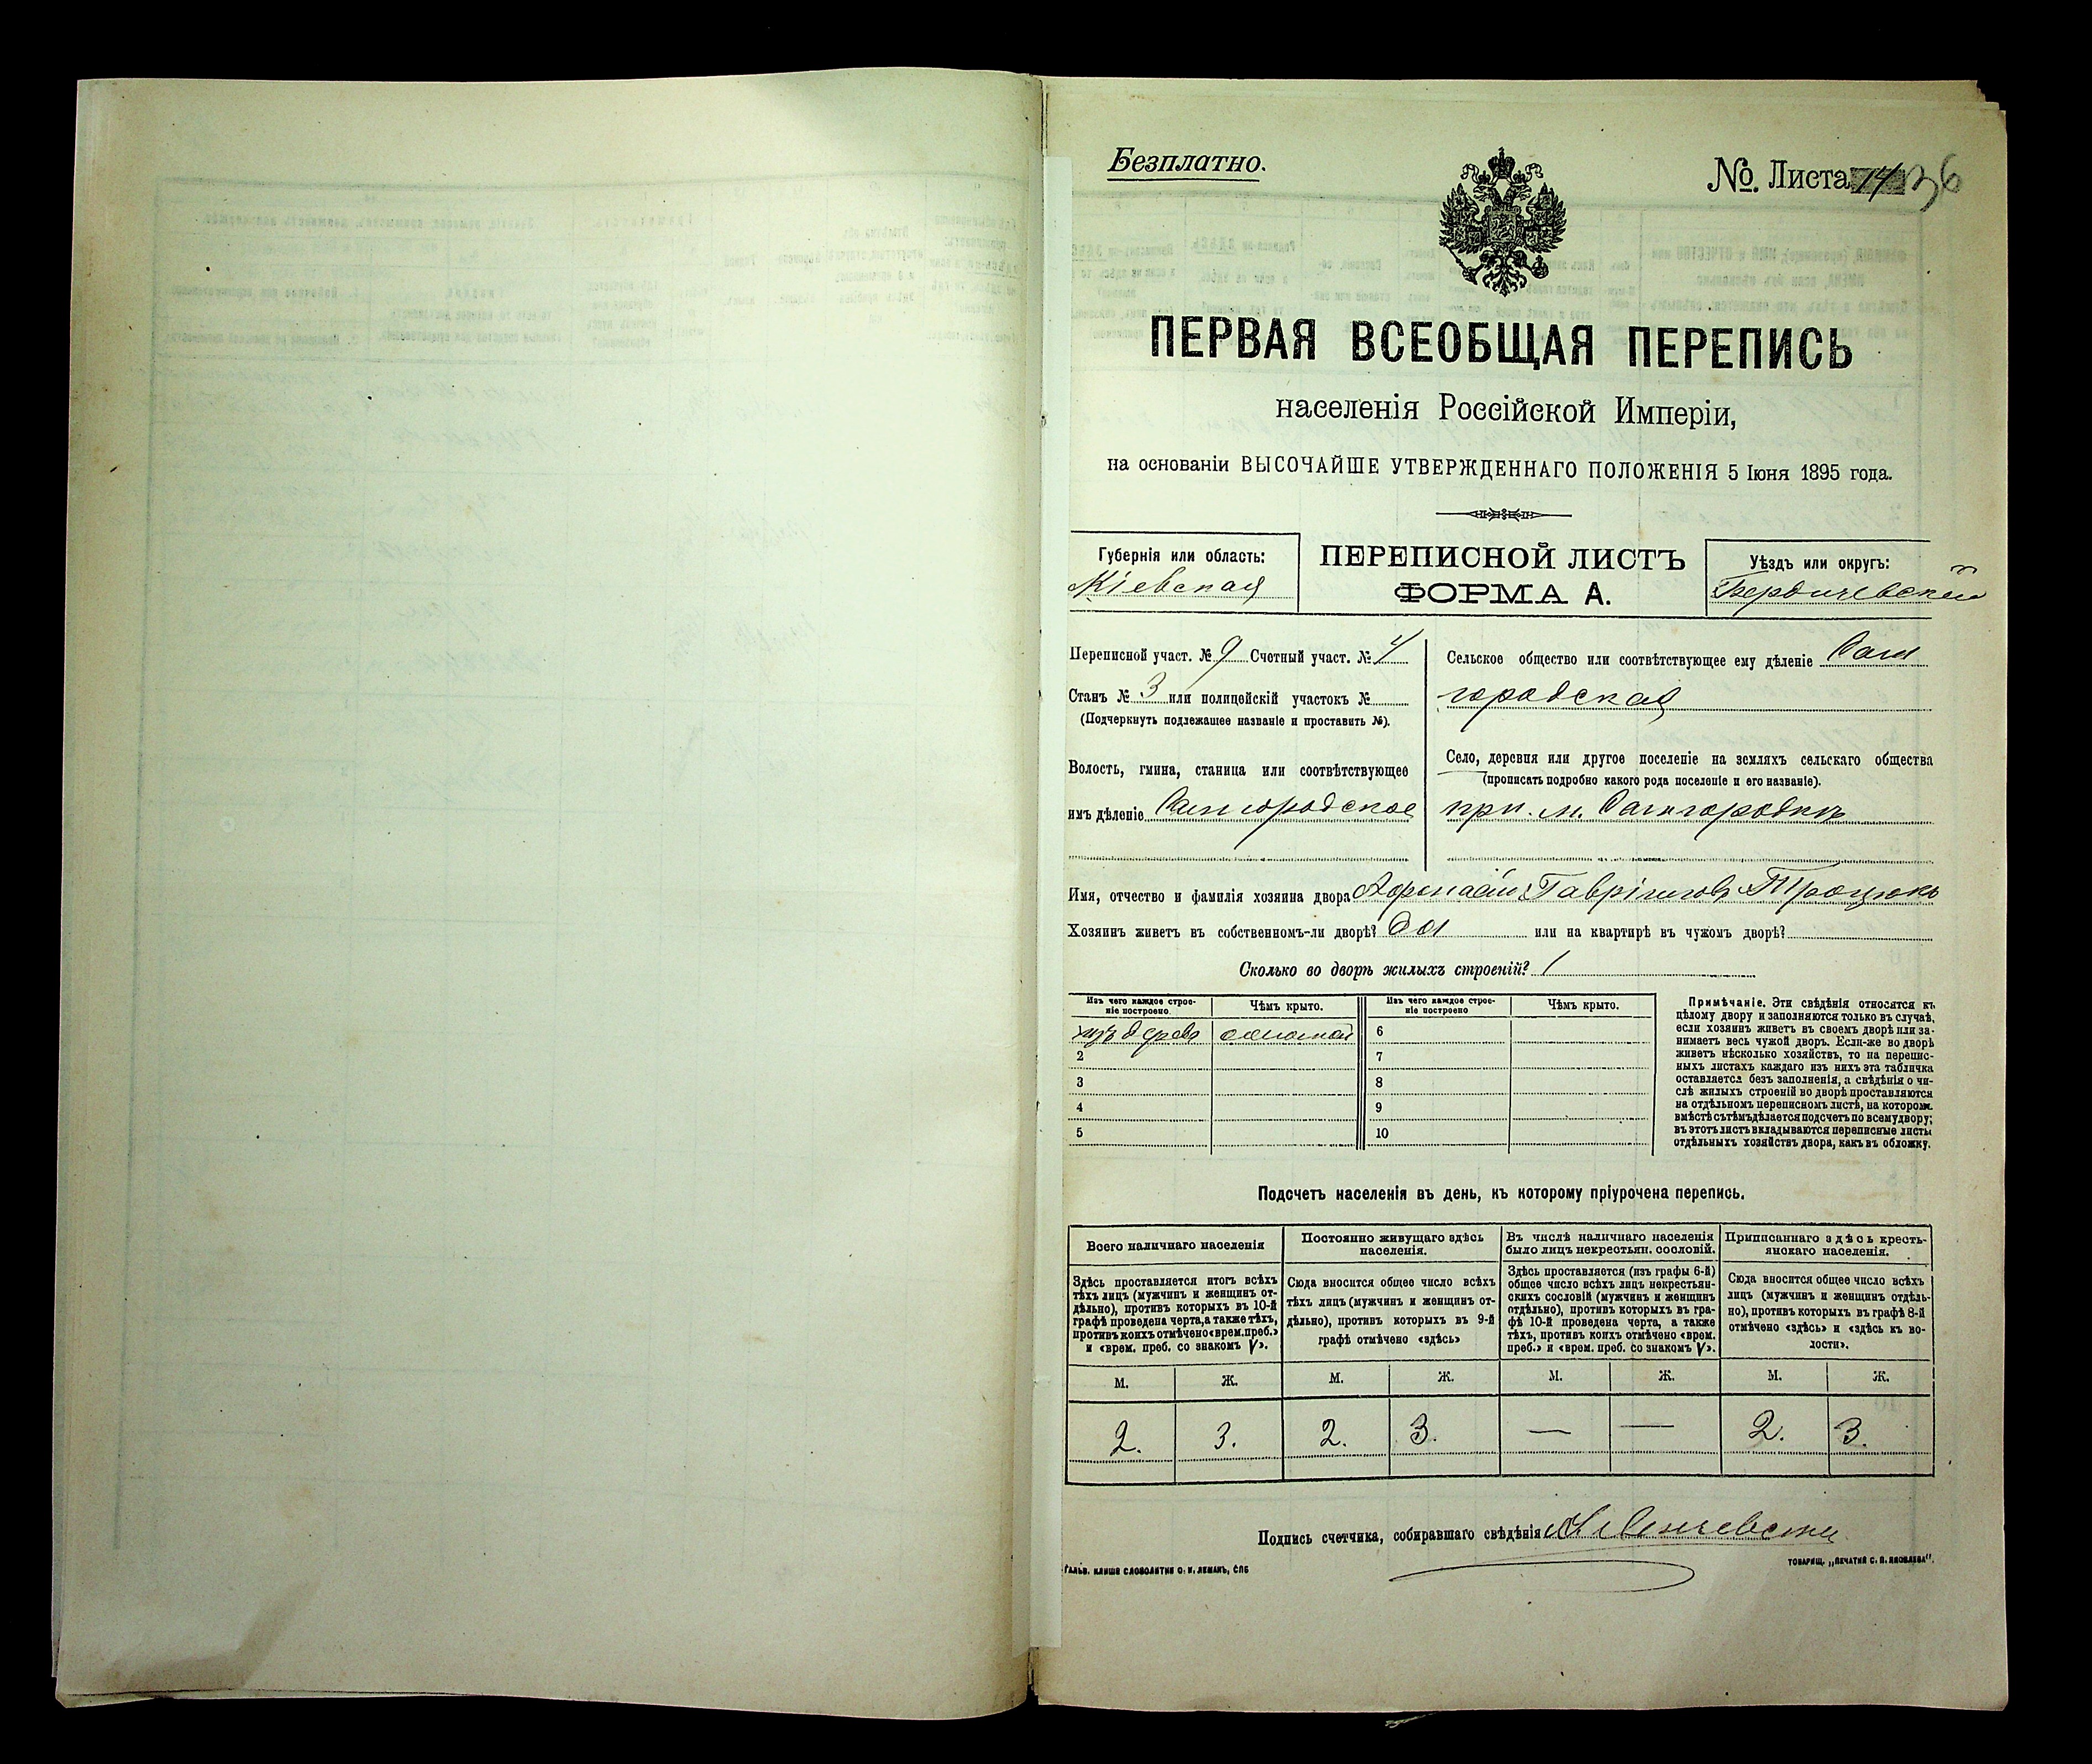 Безплатно.
№ Листа 14 36
ПЕРВАЯ ВСЕОБЩАЯ ПЕРЕПИСЬ
населенія Россійской Имперіи,
на основаніи ВЫСОЧАЙШЕ УТВЕРЖДЕННАГО ПОЛОЖЕНІЯ 5 Іюня 1895 года.
Губернія или область:
Кіевская
ПЕРЕПИСНОЙ ЛИСТЪ
ФОРМА А.
Уѣздъ или округъ:
Бердичевскій
Переписной участ. № 9 Счетный участ. № 4
Станъ № 3 или полицейскій участокъ №
(Подчеркнуть подлежащее названіе и проставить №).
Волость, гмина, станица или соотвѣтствующее
имъ дѣленіе Самгородское
Сельское общество или соотвѣтствующее ему дѣленіе Сам
городская
Село, деревня или другое поселеніе на земляхъ сельскаго общества
(прописать подробно какого рода поселеніе и его названіе).
при м. Самгородкѣ
Имя, отчество и фамилія хозяина двора Гавріиловъ Троцюкъ
Хозяинъ живетъ въ собственномъ-ли дворѣ? да или на квартирѣ въ чужомъ дворѣ?
Сколько во дворѣ жилыхъ строеній? 1
Изъ чего каждое строеніе построено. Чѣмъ крыто. Изъ чего каждое строеніе построено Чѣмъ крыто.
изъ дерева соломой 6
2 7
3 8
4 9
5 10
Примѣчаніе. Эти свѣдѣнія относятся къ
цѣлому двору и заполняются только въ случаѣ,
если хозяинъ живетъ въ своемъ дворѣ или за-
нимаетъ весь чужой дворъ. Если-же во дворѣ
живетъ нѣсколько хозяйствъ, то на перепис-
ныхъ листахъ каждаго изъ нихъ эта табличка
оставляется безъ заполненія, а свѣдѣнія о чи-
слѣ жилыхъ строеній во дворѣ проставляются
на отдѣльномъ переписномъ листѣ, на которомъ
вмѣстѣ съ тѣмъ дѣлается подсчетъ по всему двору;
въ этотъ листъ вкладываются переписные листы
отдѣльныхъ хозяйствъ двора, какъ въ обложку.
Подсчетъ населенія въ день, къ которому пріурочена перепись.
Всего наличнаго населенія
Здѣсь проставляется итогъ всѣхъ
тѣхъ лицъ (мужчинъ и женщинъ от-
дѣльно), противъ которыхъ въ 10-й
графѣ проведена черта, а также тѣхъ,
противъ коихъ отмѣчено «врем. преб.»
и «врем. преб. со знакомъ V».
Постоянно живущаго здѣсь
населенія.
Сюда вносится общее число всѣхъ
тѣхъ лицъ (мужчинъ и женщинъ от-
дѣльно), противъ которыхъ въ 9-й
графѣ отмѣчено «здѣсь»
Въ числѣ наличнаго населенія
было лицъ некрестьян. сословій.
Здѣсь проставляется (изъ графы 6-й)
общее число всѣхъ лицъ некрестьян-
скихъ сословій (мужчинъ и женщинъ
отдѣльно), противъ которыхъ въ гра-
фѣ 10-й проведена черта, а также
тѣхъ, противъ коихъ отмѣчено «врем.
преб.» и «врем. преб. со знакомъ V».
Приписаннаго здѣсь кресть-
янскаго населенія.
Сюда вносится общее число всѣхъ
лицъ (мужчинъ и женщинъ отдѣль-
но), противъ которыхъ въ графѣ 8-й
отмѣчено «здѣсь» и «здѣсь къ во-
лости».
М. Ж. М. Ж. М. Ж. М. Ж.
2. 3. 2. 3. — — 2. 3.
Подпись счетчика, собиравшаго свѣдѣнія
ГАЛЬВ. КЛИШЕ СЛОВОЛИТНИ О. И. ЛЕМАНЪ, СПБ
ТОВАРИЩ. „ПЕЧАТНЯ С. П. ЯКОВЛЕВА".